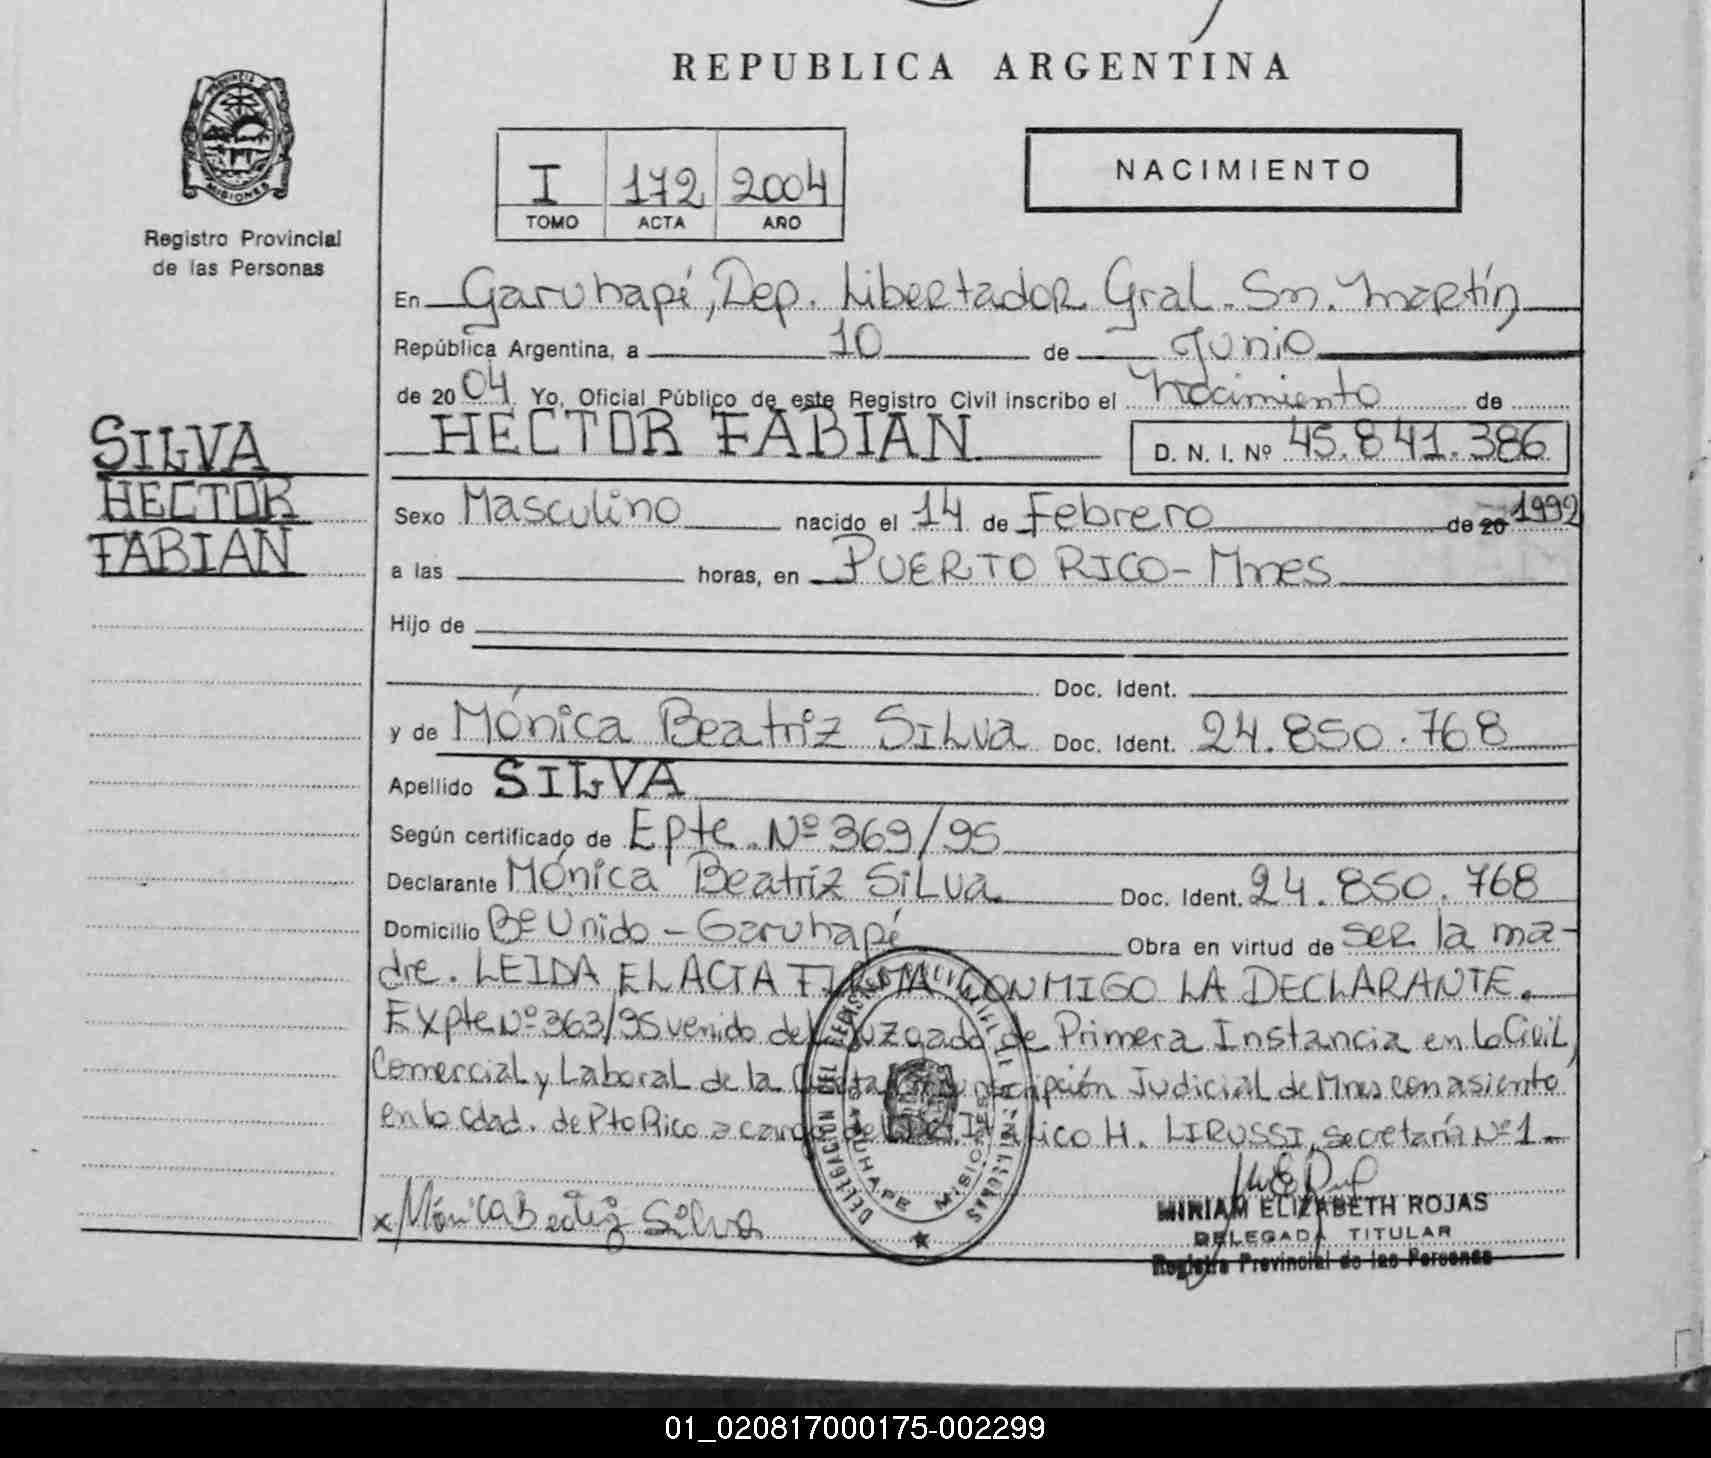 REPUBLICA ARGENTINA
PROVINCIA DE
MISIONES
Registro Provincial
de las Personas
I 172 2004
TOMO ACTA AÑO
NACIMIENTO
SILVA
HECTOR
FABIAN
En Garuhapé, Dep. Libertador Gral. Sn. Martín
República Argentina, a 10 de Junio
de 2004 Yo, Oficial Público de este Registro Civil inscribo el Nacimiento de
HECTOR FABIAN D. N. I. Nº 45.841.386
Sexo Masculino nacido el 14 de Febrero de 20 1992
a las horas, en PUERTO RICO - Mnes
Hijo de
Doc. Ident.
y de Mónica Beatriz SILVA Doc. Ident. 24.850.768
Apellido SILVA
Según certificado de Epte. Nº 369/95
Declarante Mónica Beatriz SILVA Doc. Ident. 24.850.768
Domicilio Bº Unido - Garuhapé Obra en virtud de ser la ma-
dre. LEIDA EL ACTA FIRMA CONMIGO LA DECLARANTE.
Expte Nº 363/95 venido del Juzgado de Primera Instancia en lo Civil,
Comercial y Laboral de la Cuarta Circunscripción Judicial de Mnes con asiento
en la cdad. de Pto Rico a cargo del H. LIRUSSI, secretaría Nº 1.
DELEGACION DEL REGISTRO PROVINCIAL DE LAS PERSONAS
GARUHAPE MISIONES
x Mónica Beatriz Silva
MIRIAM ELIZABETH ROJAS
DELEGADA TITULAR
Registro Provincial de las Personas
01_020817000175-002299